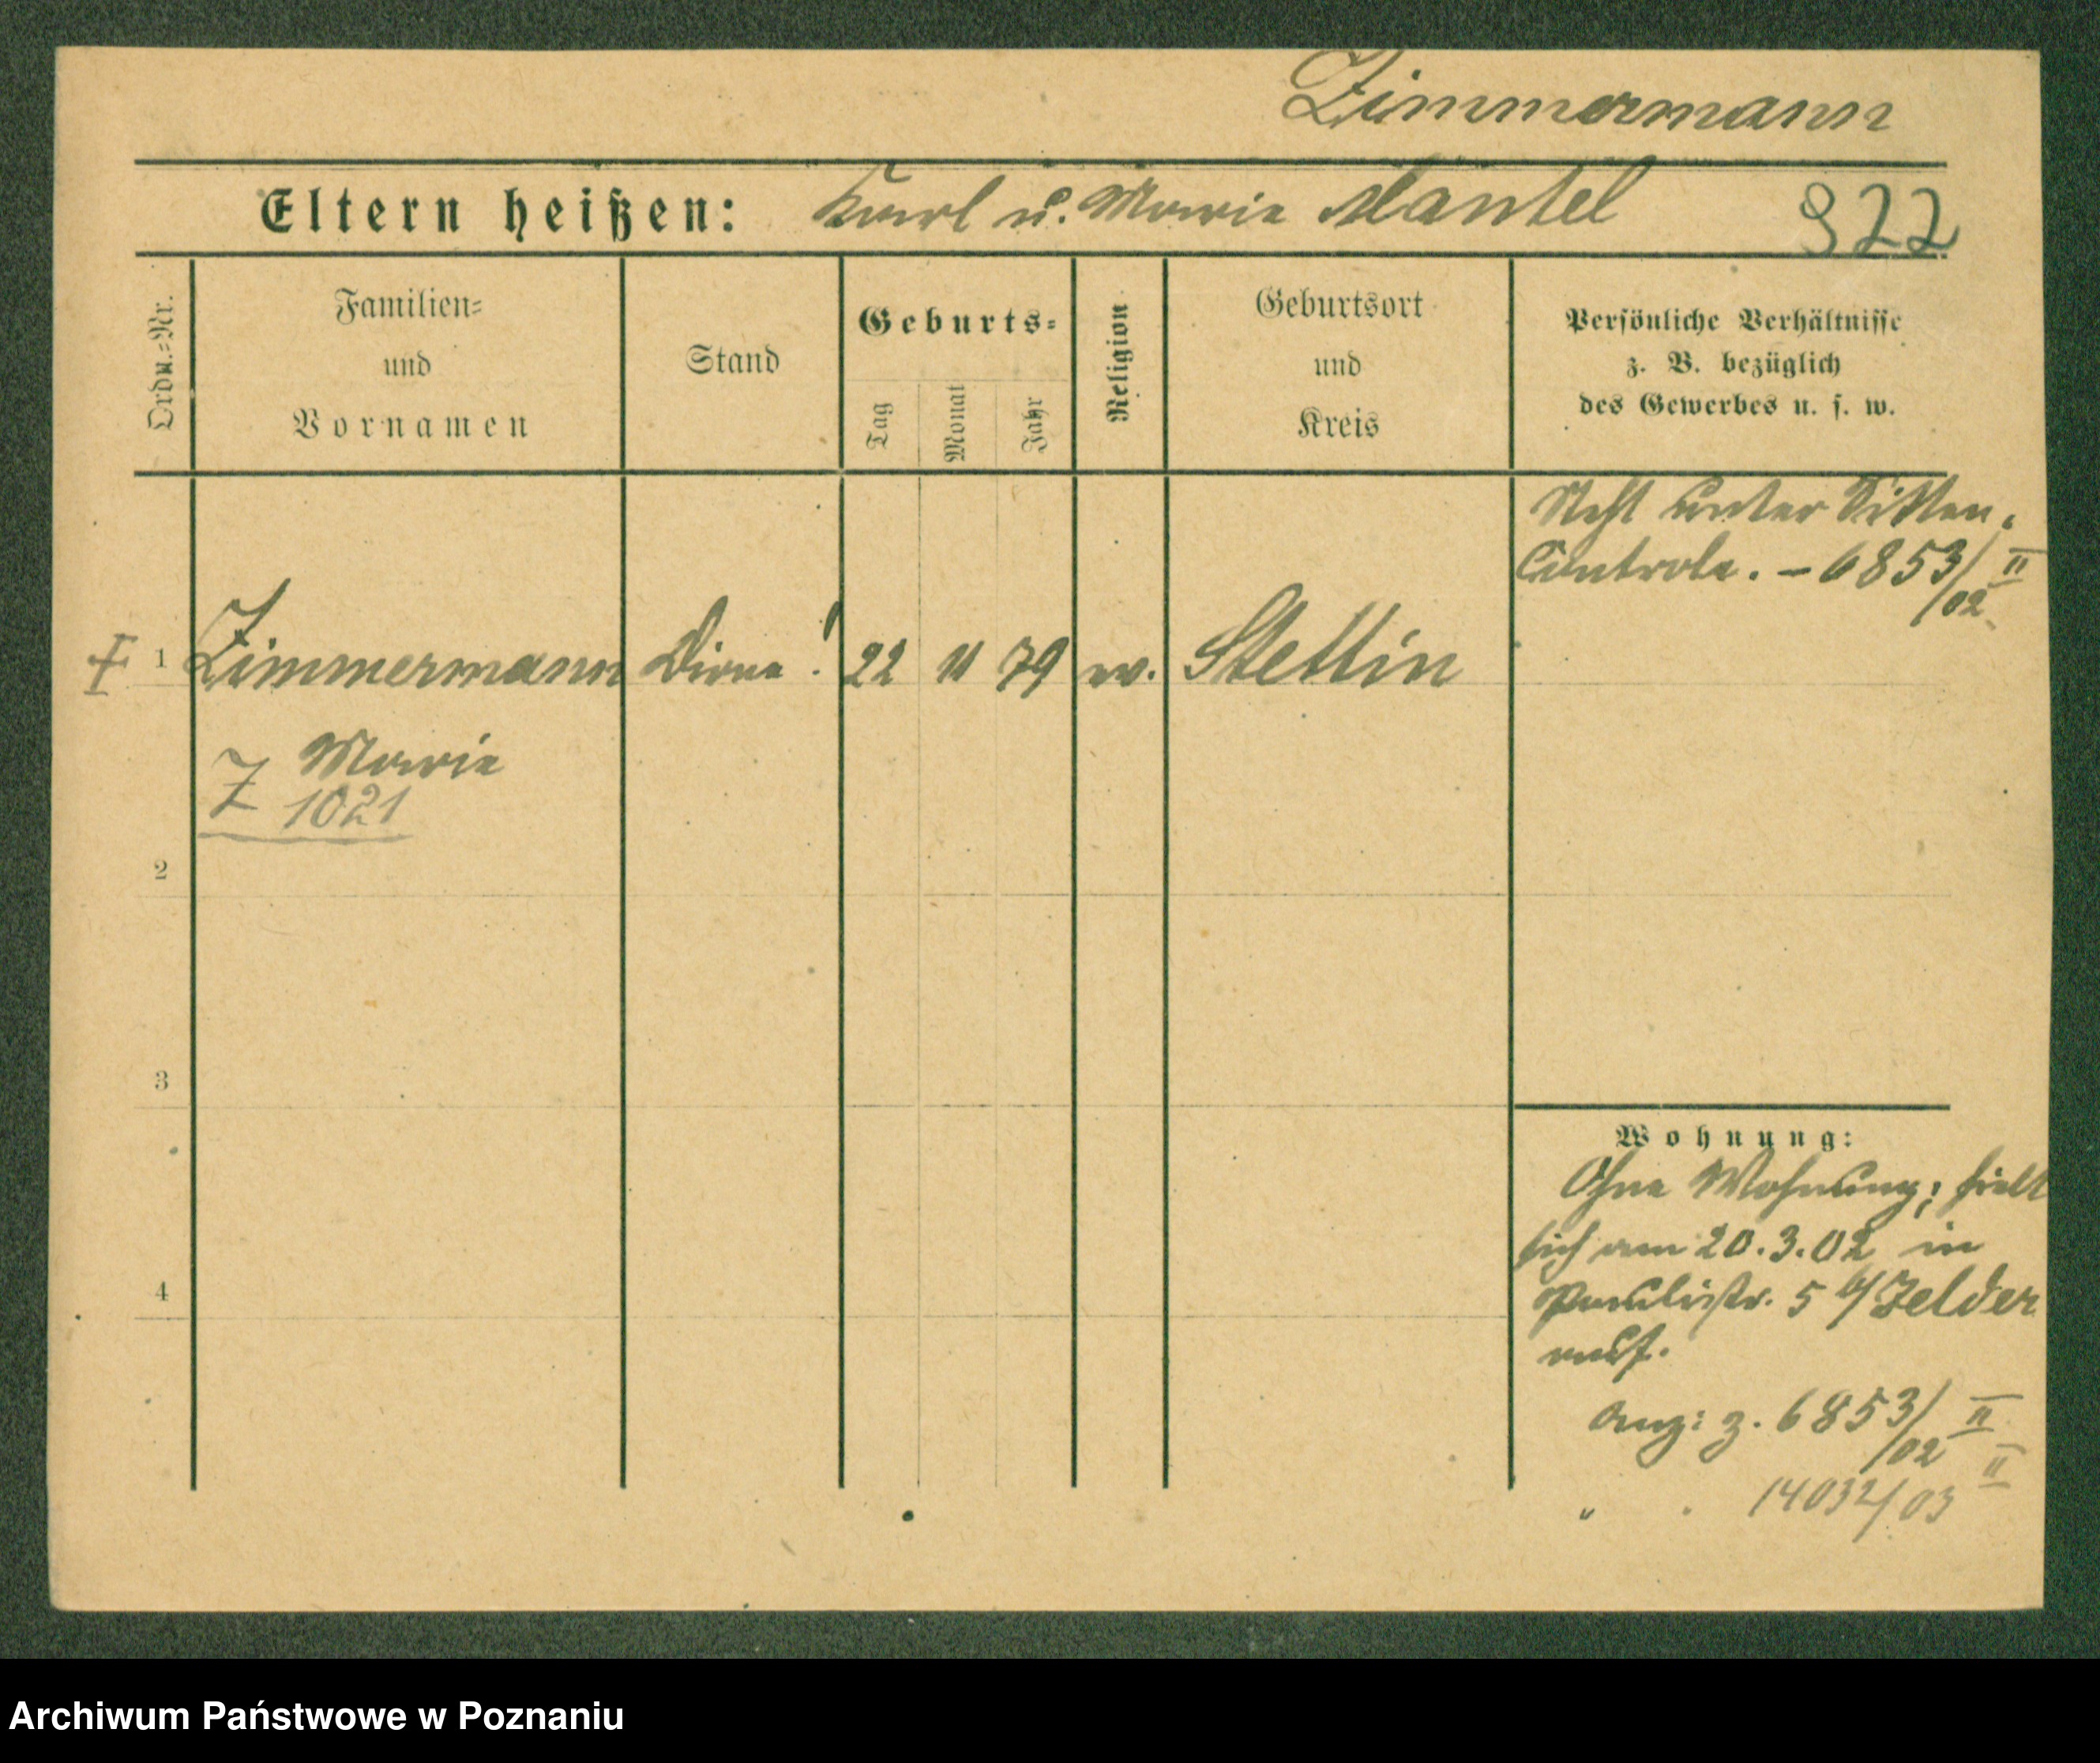 Zimmermann
Eltern heißen: Karl u. Marie Mantel 922
Ordn.=Nr.
Familien=
und
Vornamen
Stand
Geburts=
Tag
Monat
Jahr
Religion
Geburtsort
und
Kreis
Persönliche Verhältnisse
z. B. bezüglich
des Gewerbes u. s. w.
Steht unter Sitten.
Controle. – 6853/02 II
1 Zimmermann Dirne! 22 11 79 ev. Stettin
Marie
Z 1021
2
3
4
Wohnung:
Ohne Wohnung; hielt
sich am 20.3.02 in
Paulistr. 5 b/ Zelder
auf.
Anz: z. 6853/02 II
" 14032/03 II
Archiwum Państwowe w Poznaniu